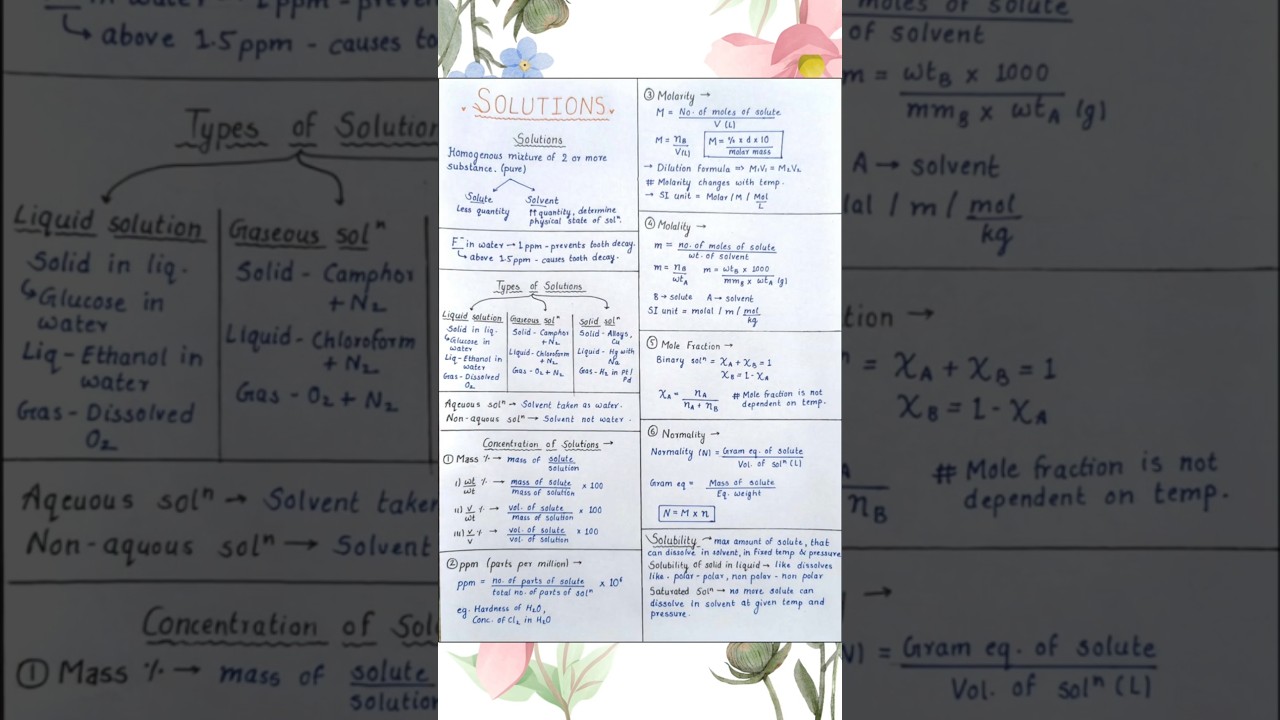 SOLUTIONS
Solutions
Homogenous mixture of 2 or more
substance. (pure)
Solute
Less quantity
Solvent
↑↑ quantity, determine
physical state of solⁿ.
F⁻ in water → 1 ppm - prevents tooth decay.
↳ above 1.5 ppm - causes tooth decay.
Types of Solutions
Liquid solution
Solid in liq.
↳ Glucose in
water
Liq - Ethanol in
water
Gas - Dissolved
O₂
Gaseous solⁿ
Solid - Camphor
+ N₂
Liquid - Chloroform
+ N₂
Gas - O₂ + N₂
Solid solⁿ
Solid - Alloys,
Cu
Liquid - Hg with
Na
Gas - H₂ in Pt/
Pd
Aqeuous solⁿ → Solvent taken as water.
Non-aquous solⁿ → Solvent not water.
Concentration of Solutions →
① Mass % → mass of solute / solution
i) wt/wt % → mass of solute / mass of solution × 100
ii) v/wt % → vol. of solute / mass of solution × 100
iii) v/v % → vol. of solute / vol. of solution × 100
② ppm (parts per million) →
ppm = no. of parts of solute / total no. of parts of solⁿ × 10⁶
eg. Hardness of H₂O,
Conc. of Cl₂ in H₂O
③ Molarity →
M = No. of moles of solute / V (L)
M = n_B / V(L) M = % × d × 10 / molar mass
→ Dilution formula => M₁V₁ = M₂V₂
# Molarity changes with temp.
→ SI unit = Molar / M / Mol/L
④ Molality →
m = no. of moles of solute / wt. of solvent
m = n_B / wt_A m = wt_B × 1000 / mm_B × wt_A (g)
B → solute A → solvent
SI unit = molal / m / mol/kg
⑤ Mole Fraction →
Binary solⁿ = χ_A + χ_B = 1
χ_B = 1 - χ_A
χ_A = n_A / n_A + n_B # Mole fraction is not
dependent on temp.
⑥ Normality →
Normality (N) = Gram eq. of solute / Vol. of solⁿ (L)
Gram eq = Mass of solute / Eq. weight
N = M × n
Solubility → max amount of solute, that
can dissolve in solvent, in fixed temp & pressure
Solubility of solid in liquid → like dissolves
like. polar - polar, non polar - non polar
Saturated Solⁿ → no more solute can
dissolve in solvent at given temp and
pressure.